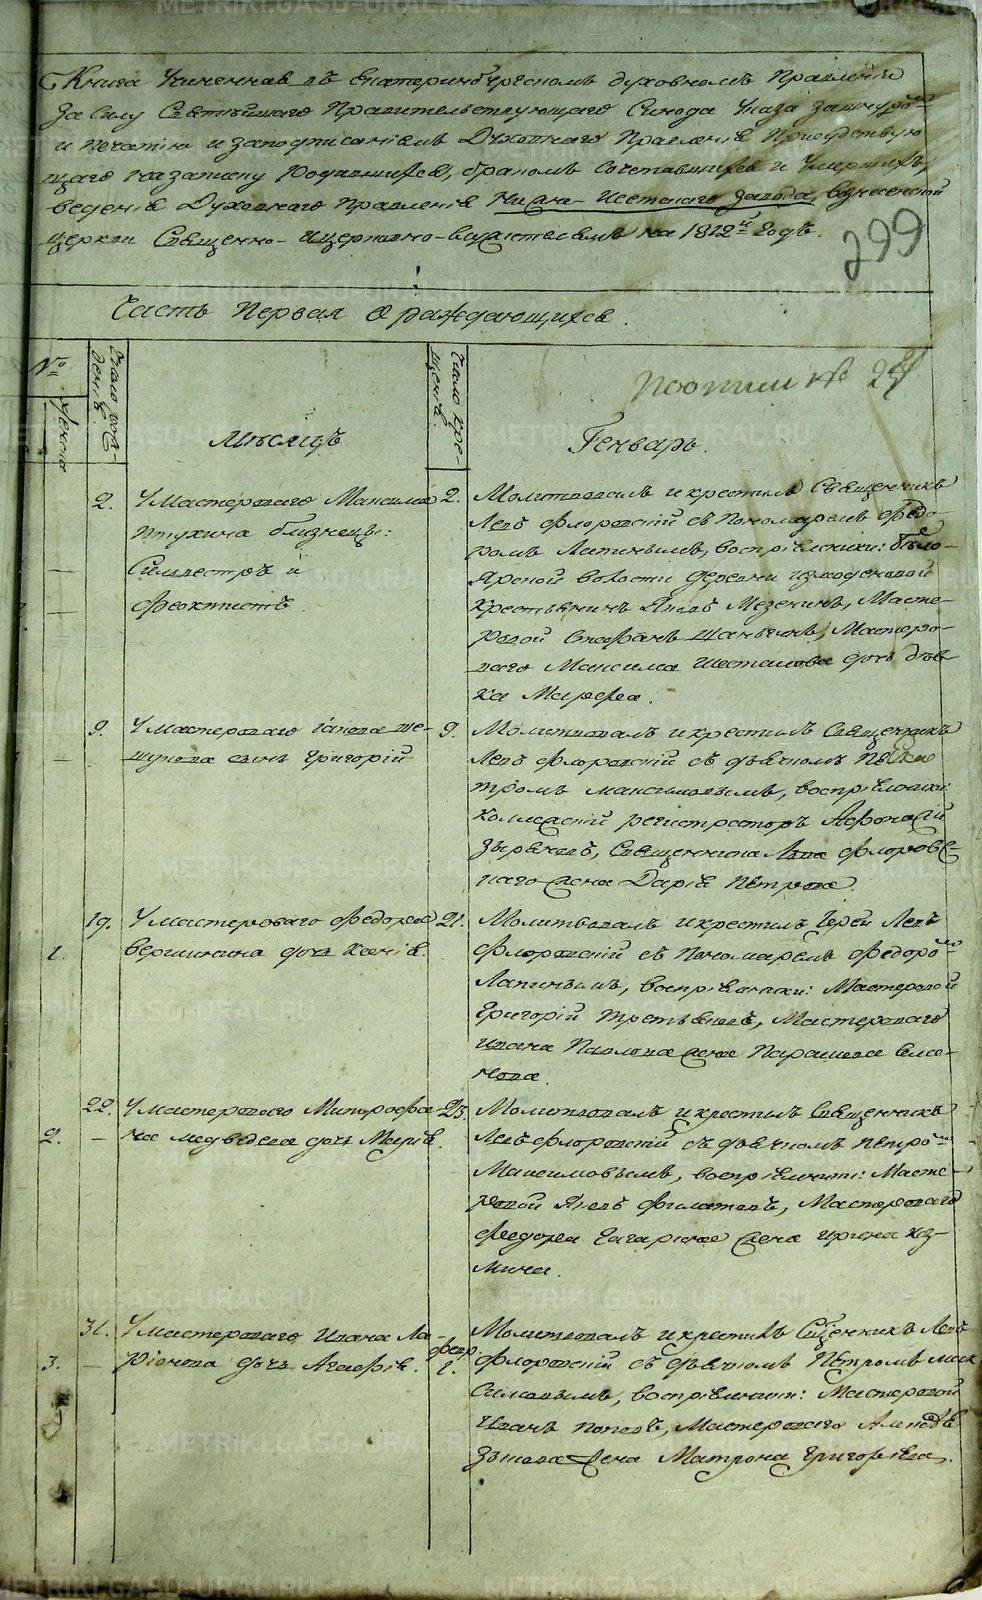 Книга Учиненная въ Екатеринбургскомъ духовномъ Правленiи
За Силу Святѣйшаго Правительствующаго Синода Указа За шнуромъ
и печатiю и заподписанiемъ Духовнаго Правленiя Присудствую
щаго на записку Родившихся, бракомъ Сочетавшихся и Умершихъ
веденiя Духовнаго Правленiя Нижне-Исетскаго Завода, Вознесенской
церкви Священно-и церковно-служителямъ на 1812й Годъ.
299
Часть Первая О раждающихся.
Посписи № 24
№
женска
Число рож-
денiя.
Число кре-
щенiя.
Мѣсяцъ
Генварь.
2. У Мастероваго Максима
Птухина близнецы:
Силвестръ и
Феоктистъ.
2. Молитвовалъ и крестилъ Священникъ
Левъ Флоровскiй съ Пономаремъ Федо-
ромъ Лапинымъ, воспрiемники: Бѣло-
Ярской волости деревни
крестьянинъ Яковъ Мезенинъ, Масте-
ровой Стефанъ Шаньгинъ, Мастеро-
ваго Максима Шесталова дочь дѣв-
ка Марфа.
9. У Мастероваго Iакова Ше-
шукова сынъ Григорiй
9. Молитвовалъ и крестилъ Священникъ
Левъ Флоровскiй съ дьячкомъ Пе
тромъ Максимовымъ, воспрiемники:
Коллеский регистраторъ Афонасiй
Зыряновъ, Священника Льва Флоровс-
каго жена Дарiя Петрова.
1.
19. У мастероваго Федора
Вершинина дочь Ксенiя.
21. Молитвовалъ и крестилъ Iерей Левъ
Флоровскiй съ Пономаремъ Федоромъ
Лапинымъ, воспрiемники: Мастеровой
Григорiй Третьяковъ, Мастероваго
Ивана Павлова жена Парасковья Семе-
нова.
2.
22. У мастероваго Митрофа-
на Медведева дочь Марiя.
23. Молитвовалъ и крестилъ Священникъ
Левъ Флоровскiй съ дьячкомъ Петромъ
Максимовымъ, воспрiемники: Масте-
ровой Яковъ Филатовъ, Мастероваго
Федора Гагарина жена Ирина Куз-
мина.
3.
31. У мастероваго Ивана Ла-
рiонова дочь Агафiя.
февр.
1. Молитвовалъ и крестилъ Сщенникъ Левъ
Флоровскiй съ дьячкомъ Петромъ Мак
симовымъ, воспрiемники: Мастеровой
Иванъ Поповъ, Мастероваго Алексѣя
Зотова жена Матрона Григорьева.